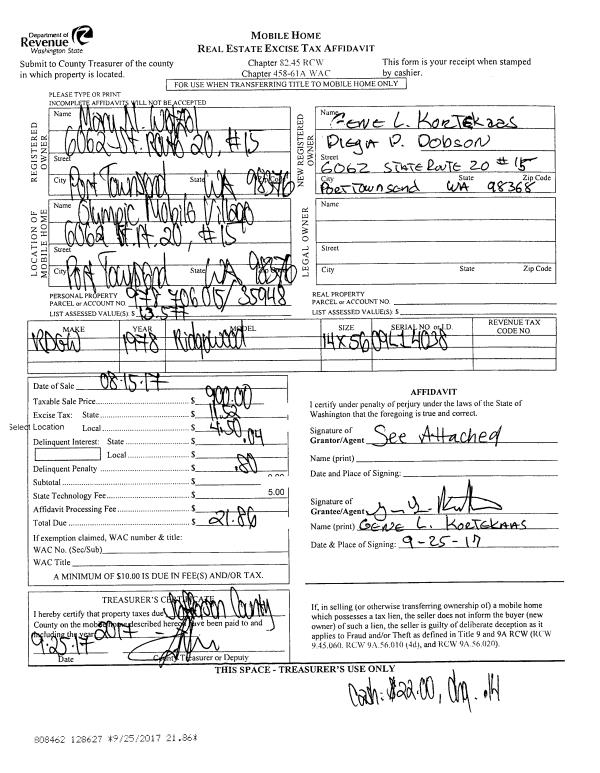 Department of
Revenue
Washington State
MOBILE HOME
REAL ESTATE EXCISE TAX AFFIDAVIT
Submit to County Treasurer of the county
in which property is located.
Chapter 82.45 RCW
Chapter 458-61A WAC
This form is your receipt when stamped
by cashier.
FOR USE WHEN TRANSFERRING TITLE TO MOBILE HOME ONLY
PLEASE TYPE OR PRINT
INCOMPLETE AFFIDAVITS WILL NOT BE ACCEPTED
REGISTERED OWNER
Name Mary N.
6062 St. Route 20, #15
Street
Port Townsend WA
City State Zip Code
NEW REGISTERED OWNER
Name GENE L. KORTEKAAS
DIEGA P. DOBSON
Street
6062 STATE ROUTE 20 #15
City State Zip Code
PORT TOWNSEND WA 98368
LOCATION OF MOBILE HOME
Name Olympic Mobile Village
6062 20, #15
Street
City Port Townsend State WA Zip Code
LEGAL OWNER
Name
Street
City State Zip Code
PERSONAL PROPERTY
PARCEL or ACCOUNT NO. 977 706 015/ 35948
LIST ASSESSED VALUE(S): $
REAL PROPERTY
PARCEL or ACCOUNT NO.
LIST ASSESSED VALUE(S): $
MAKE YEAR MODEL SIZE SERIAL NO. or I.D. REVENUE TAX CODE NO.
RDGW 1978 Ridgewood 14X56 09L14038
Date of Sale 08-15-17
Taxable Sale Price $ 900.00
Excise Tax: State $ 11.52
Select Location Local $ 4.50
Delinquent Interest: State $ .04
Local $
Delinquent Penalty $ .80
Subtotal $ 0.00
State Technology Fee $ 5.00
Affidavit Processing Fee $
Total Due $ 21.86
If exemption claimed, WAC number & title:
WAC No. (Sec/Sub)
WAC Title
A MINIMUM OF $10.00 IS DUE IN FEE(S) AND/OR TAX.
AFFIDAVIT
I certify under penalty of perjury under the laws of the State of
Washington that the foregoing is true and correct.
Signature of
Grantor/Agent See Attached
Name (print)
Date and Place of Signing:
Signature of
Grantee/Agent
Name (print) GENE L. KORTEKAAS
Date & Place of Signing: 9-25-17
TREASURER'S CERTIFICATE
I hereby certify that property taxes due Jefferson County
County on the mobile home described hereon have been paid to and
including the year 2017
9-25-17
Date County Treasurer or Deputy
If, in selling (or otherwise transferring ownership of) a mobile home
which possesses a tax lien, the seller does not inform the buyer (new
owner) of such a lien, the seller is guilty of deliberate deception as it
applies to Fraud and/or Theft as defined in Title 9 and 9A RCW (RCW
9.45.060, RCW 9A.56.010 (4d), and RCW 9A.56.020).
THIS SPACE - TREASURER'S USE ONLY
Cash: $22.00, chg. .14
808462 128627 *9/25/2017 21.86*